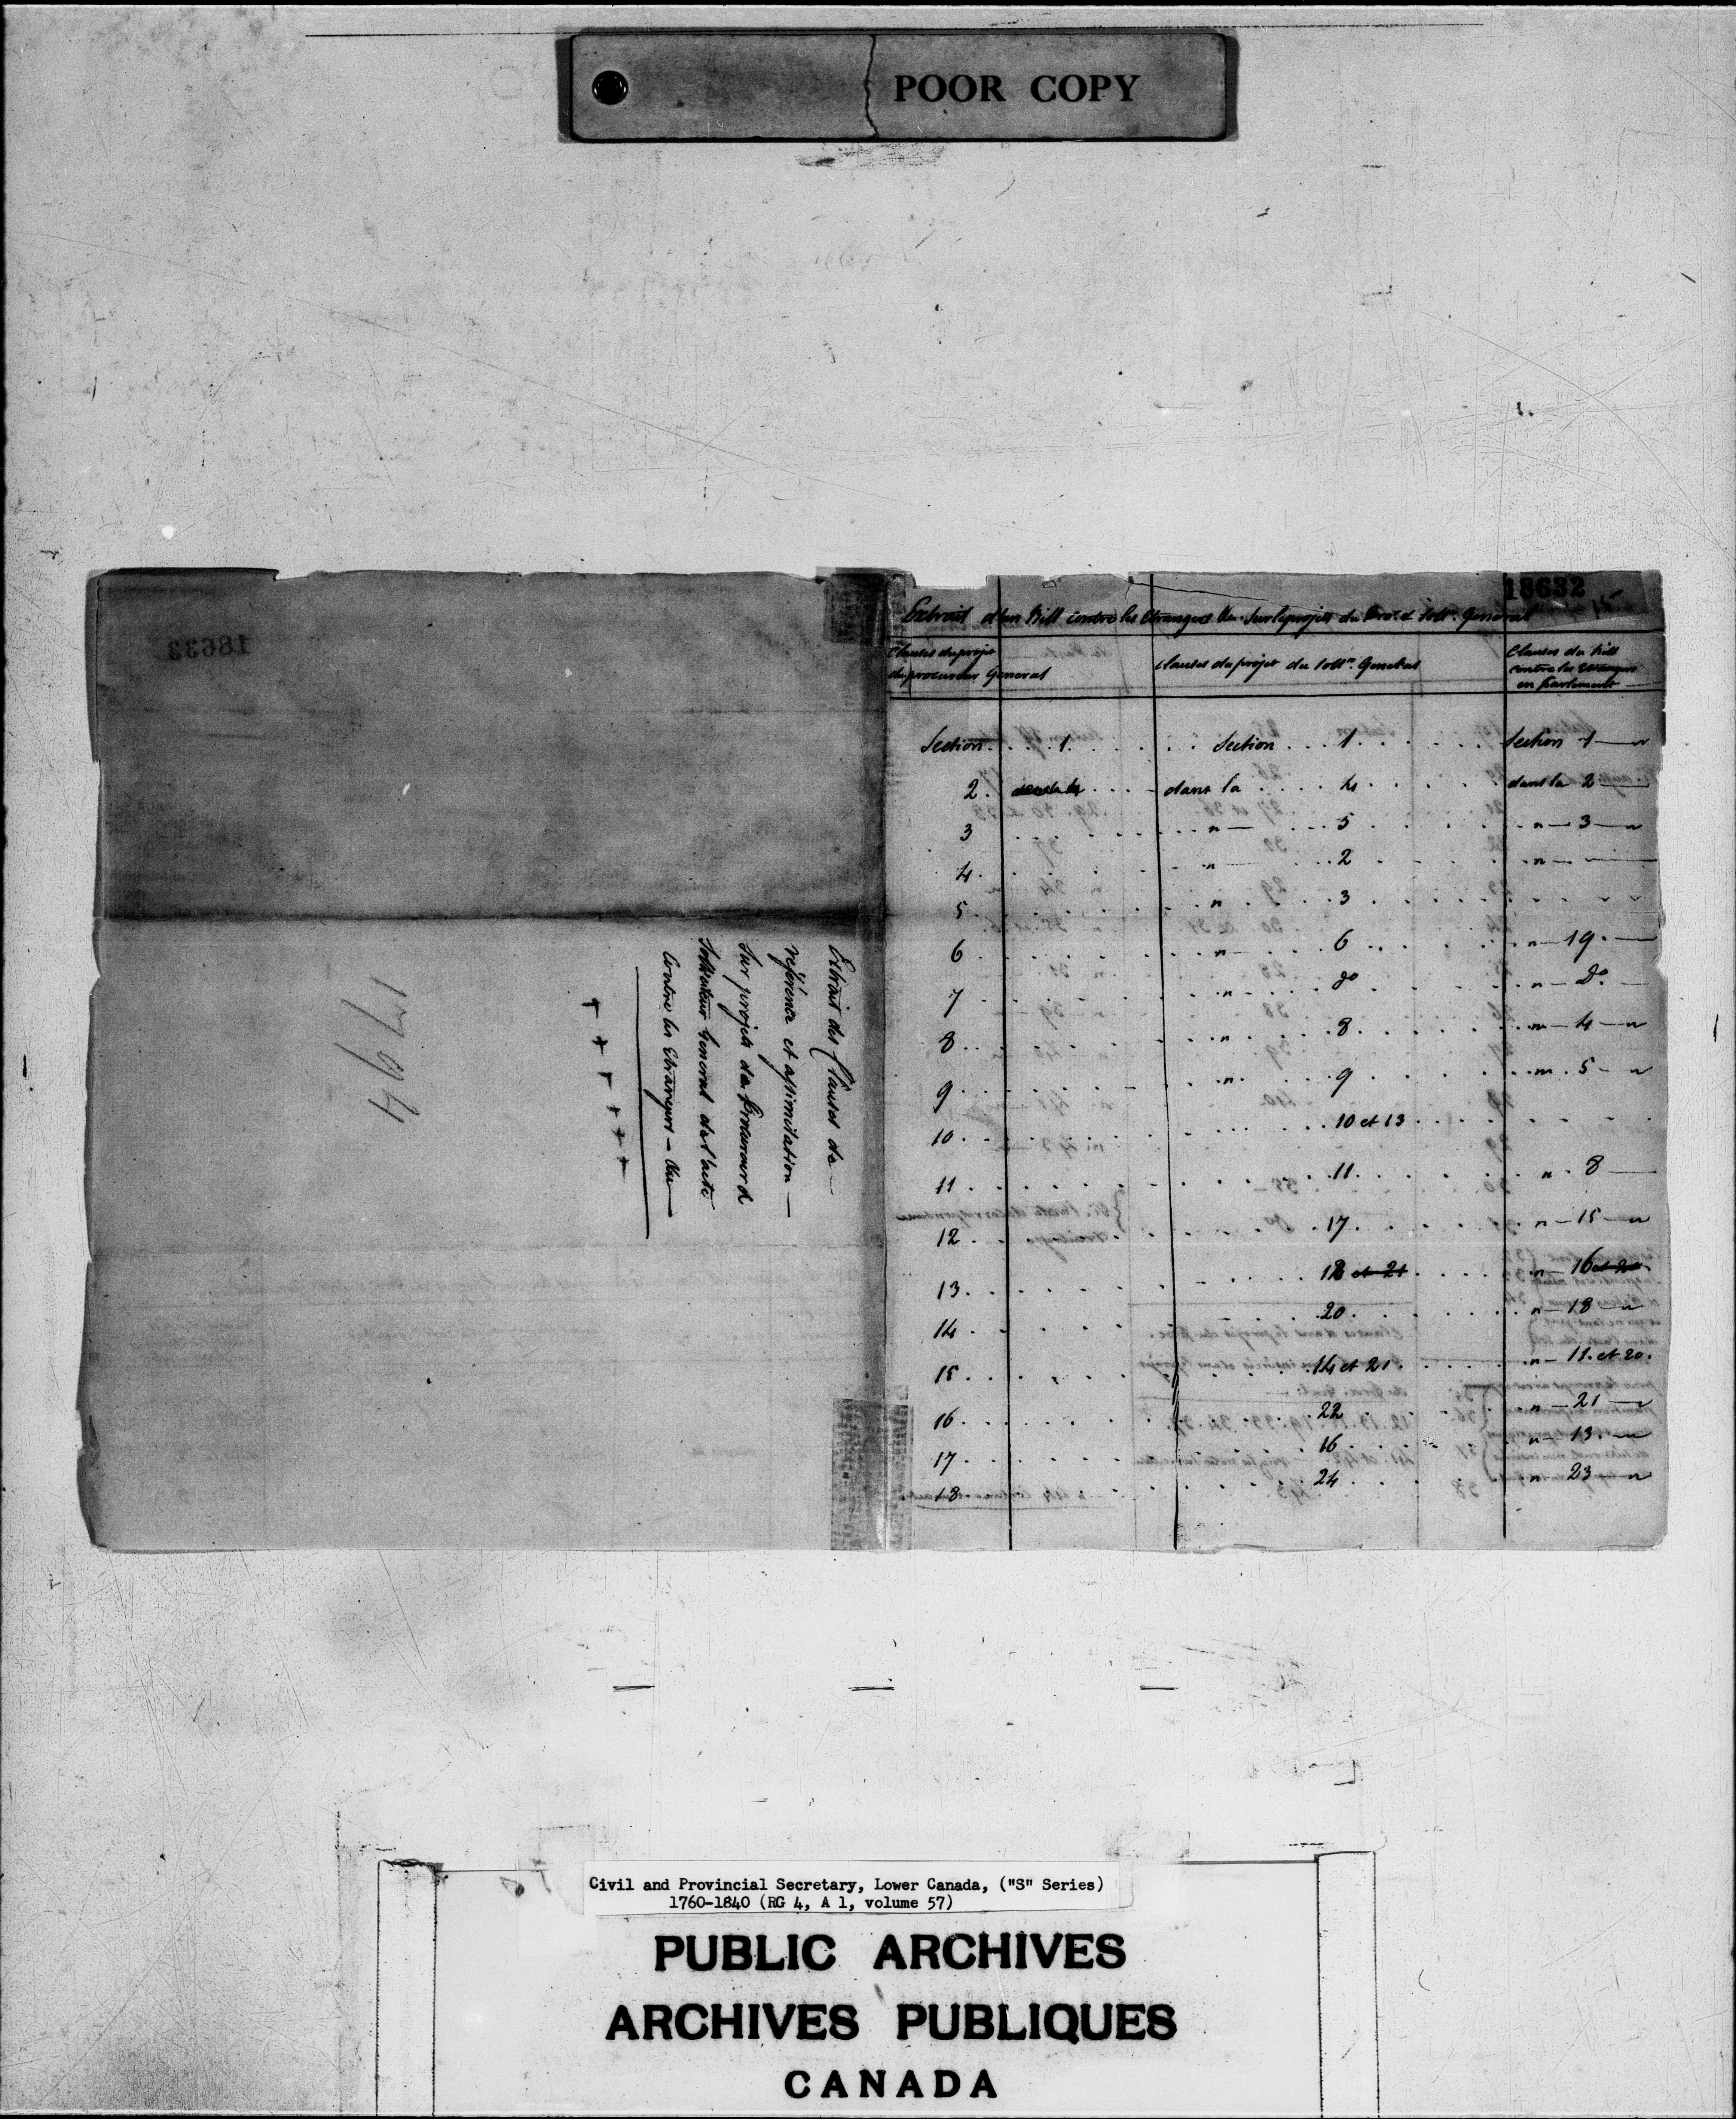 POOR COPY
18633
Extrait des Clauses de —
référence et assimilation —
Sur projets du Procureur &
Solliciteur General de l'acte
Contre les Etrangers — &ca —
+ + + + + +
1794
18632
15
Extrait d'un Bill contre les Etrangers &ca. Sur les projets du Procr. & Sollr. General
Clauses du projet du procureur General
Clauses du projet du Sollr. General
Clauses du bill contre les Etrangers en Parlement
Section . . . 1 . . . . . . Section . . . 1 . . . . . . Section 1 — "
2 . . . . dans la . . . . 4 . . . . . dans la 2 —
3 . . . . " — . . . 5 . . . . " — 3 — "
4 . . . . " — . . . 2 . . . . " —
5 . . . . " . . . 3 . . . .
6 . . . . " — . . . 6 . . . . " — 19 . —
7 . . . . " — . . . do . . . . " — Do. —
8 . . . . " . . . 8 . . . . " — 4 — "
9 . . . . " . . . 9 . . . . " . 5 — "
10 . . . . . . . 10 et 13 . . . .
11 . . . . . . . 11 . . . . " . 8 —
12 . . . . . . . 17 . . . . " — 15 — "
13 . . . . . . . 18 et 21 . . . . " — 16 et 20
14 . . . . . . . 20 . . . . " — 18 — "
15 . . . . . . . 14 et 21 . . . . " — 11 . et 20 .
16 . . . . . . . 22 . . . . " — 21 — "
17 . . . . . . . 16 . . . . " — 13 . — "
18 . . . . . . . 24 . . . . " — 23 — "
Civil and Provincial Secretary, Lower Canada, ("S" Series)
1760-1840 (RG 4, A 1, volume 57)
PUBLIC ARCHIVES
ARCHIVES PUBLIQUES
CANADA